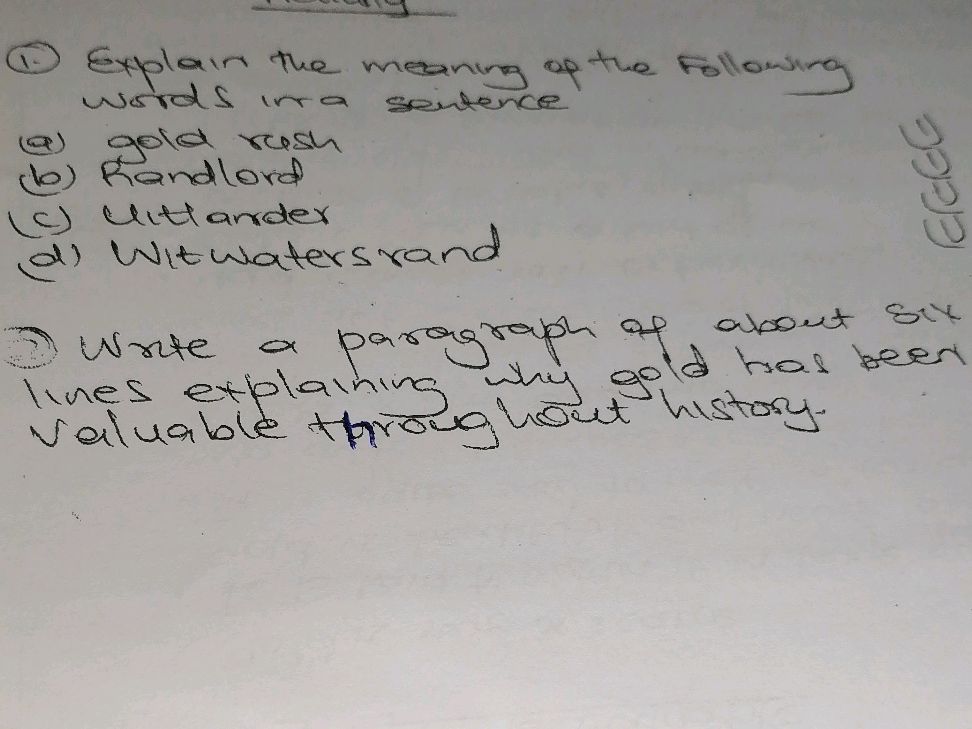 ① Explain the meaning of the Following
words in a sentence
(a) gold rush
(b) Randlord
(c) Uitlander
(d) Witwatersrand
Write a paragraph of about six
lines explaining why gold has been
valuable throughout history.